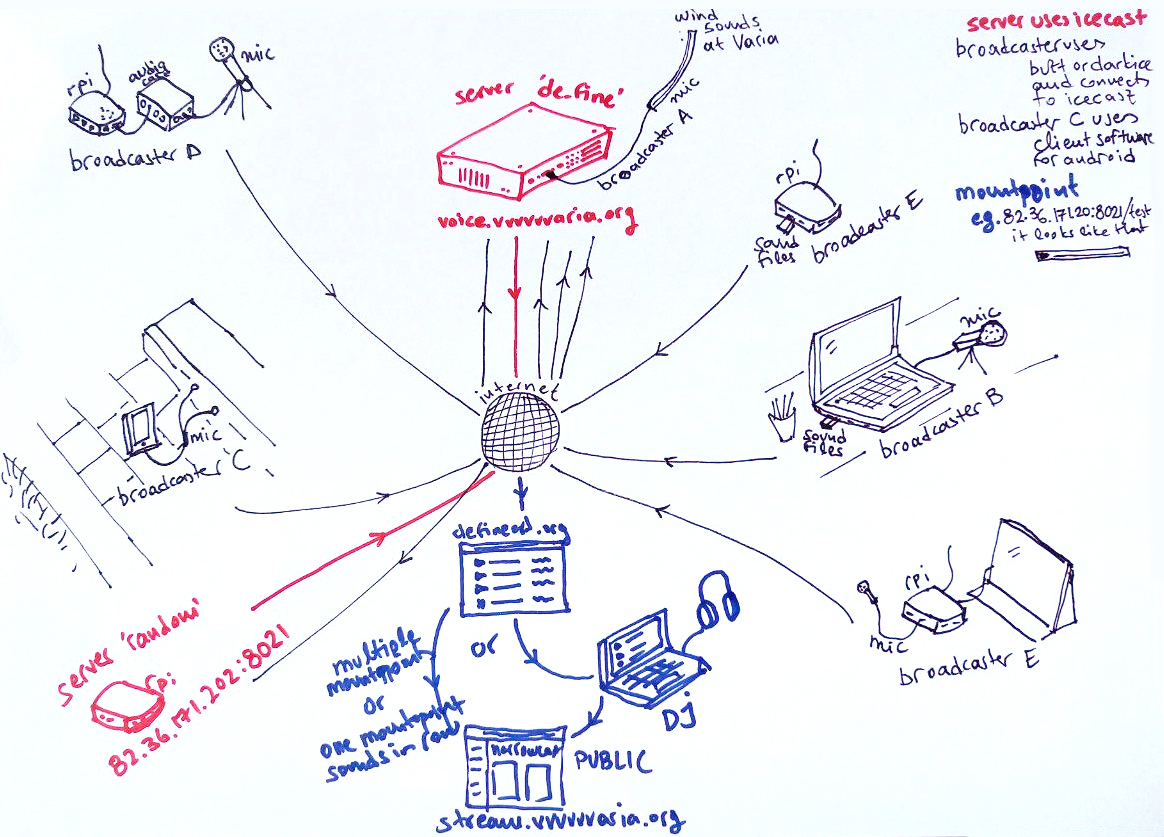 wind
sounds
at Varia
mic
broadcaster A
server uses icecast
broadcaster uses
butt or darkice
and connects
to icecast
broadcaster C uses
client software
for android
mountpoint
e.g. 82.36.171.20:8021/test
it looks like that
rpi
audio
card
mic
broadcaster D
server 'de_fine'
voice.vvvvvvaria.org
rpi
sound
files
broadcaster E
internet
mic
sound
files
broadcaster B
mic
broadcaster C
server 'random'
rpi
82.36.171.202:8021
or
multiple
mountpoint
or
one mountpoint
sounds in row
DJ
PUBLIC
stream.vvvvvvaria.org
mic
rpi
broadcaster E